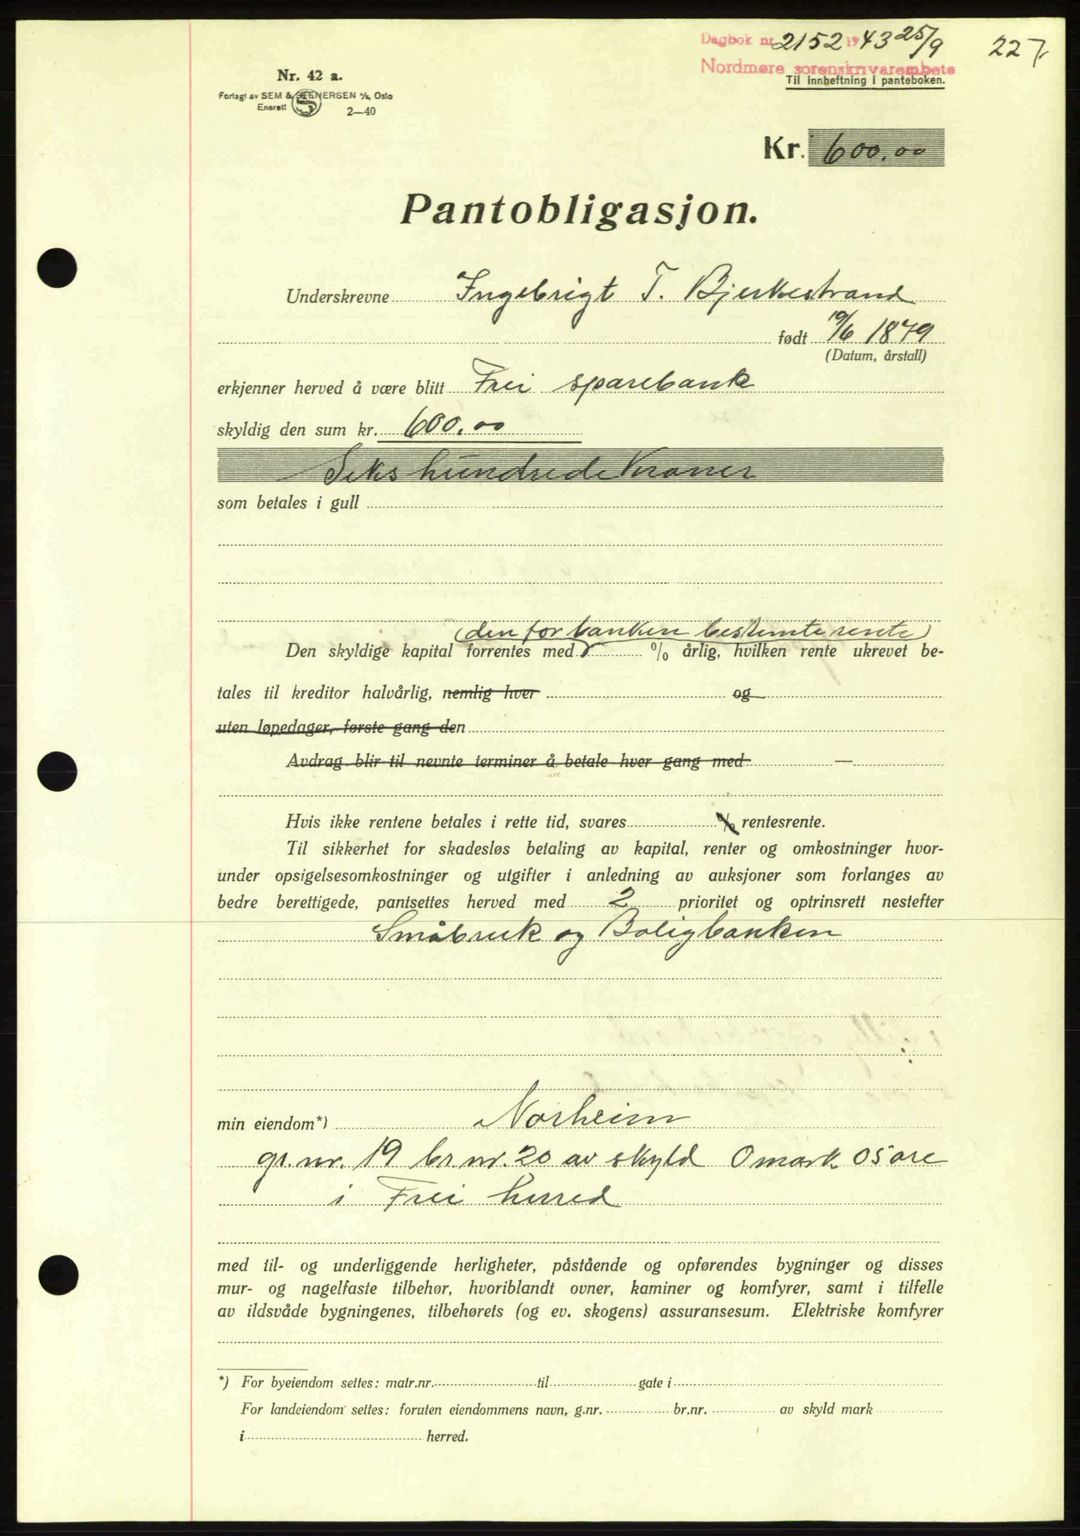 Dagbok nr. 2152 1943 25/9
227.
Nordmøre sorenskrivarembete
Til innheftning i panteboken.
Nr. 42 a.
Forlagt av SEM & STENERSEN A/S, Oslo
Enerett
S
2—40
Kr. 600.00
Pantobligasjon.
Underskrevne Ingebrigt T. Bjerkestrand
født 19/6 1879
(Datum, årstall)
erkjenner herved å være blitt Frei sparebank
skyldig den sum kr. 600.00
Seks hundrede Kroner
som betales i gull
(den for banken bestemte rente)
Den skyldige kapital forrentes med % årlig, hvilken rente ukrevet be-
tales til kreditor halvårlig, nemlig hver og
uten løpedager, første gang den
Avdrag blir til nevnte terminer å betale hver gang med —
Hvis ikke rentene betales i rette tid, svares % rentesrente.
Til sikkerhet for skadesløs betaling av kapital, renter og omkostninger hvor-
under opsigelsesomkostninger og utgifter i anledning av auksjoner som forlanges av
bedre berettigede, pantsettes herved med 2 prioritet og optrinsrett nestefter
Småbruk og Boligbanken
min eiendom*) Norheim
gr. nr. 19 br. nr. 20 av skyld 0 mark 05 øre
i Frei herred
med til- og underliggende herligheter, påstående og opførendes bygninger og disses
mur- og nagelfaste tilbehør, hvoriblandt ovner, kaminer og komfyrer, samt i tilfelle
av ildsvåde bygningenes, tilbehørets (og ev. skogens) assuransesum. Elektriske komfyrer
*) For byeiendom settes: matr.nr. til gate i
For landeiendom settes: foruten eiendommens navn, g.nr. br.nr. av skyld mark
i herred.